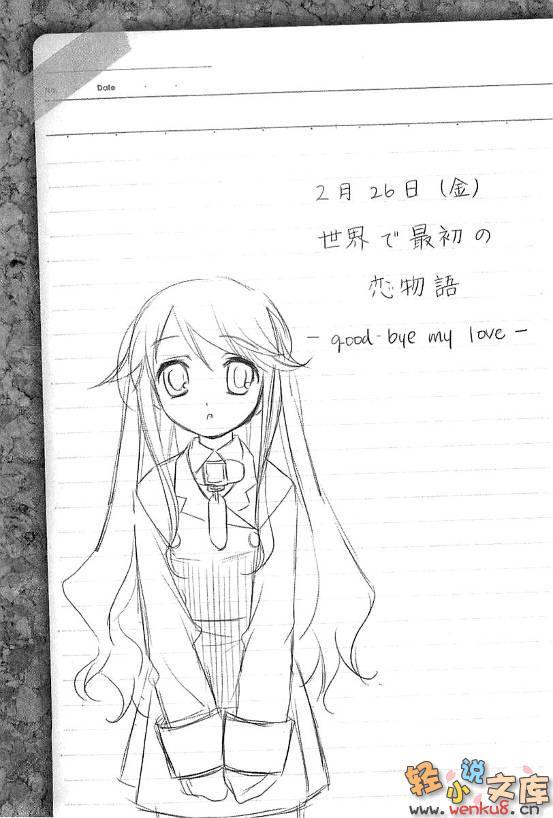 No.
Date
2月26日(金)
世界で最初の
恋物語
- good-bye my love -
轻小说文库
www.wenku8.cn